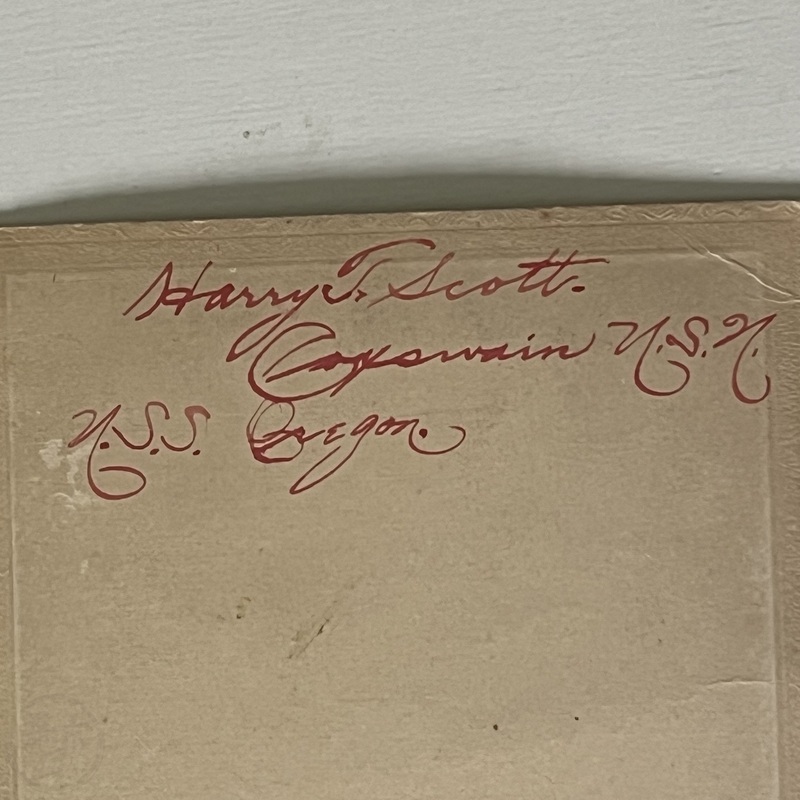 Harry T. Scott.
Coxswain U.S.N.
U.S.S. Oregon.